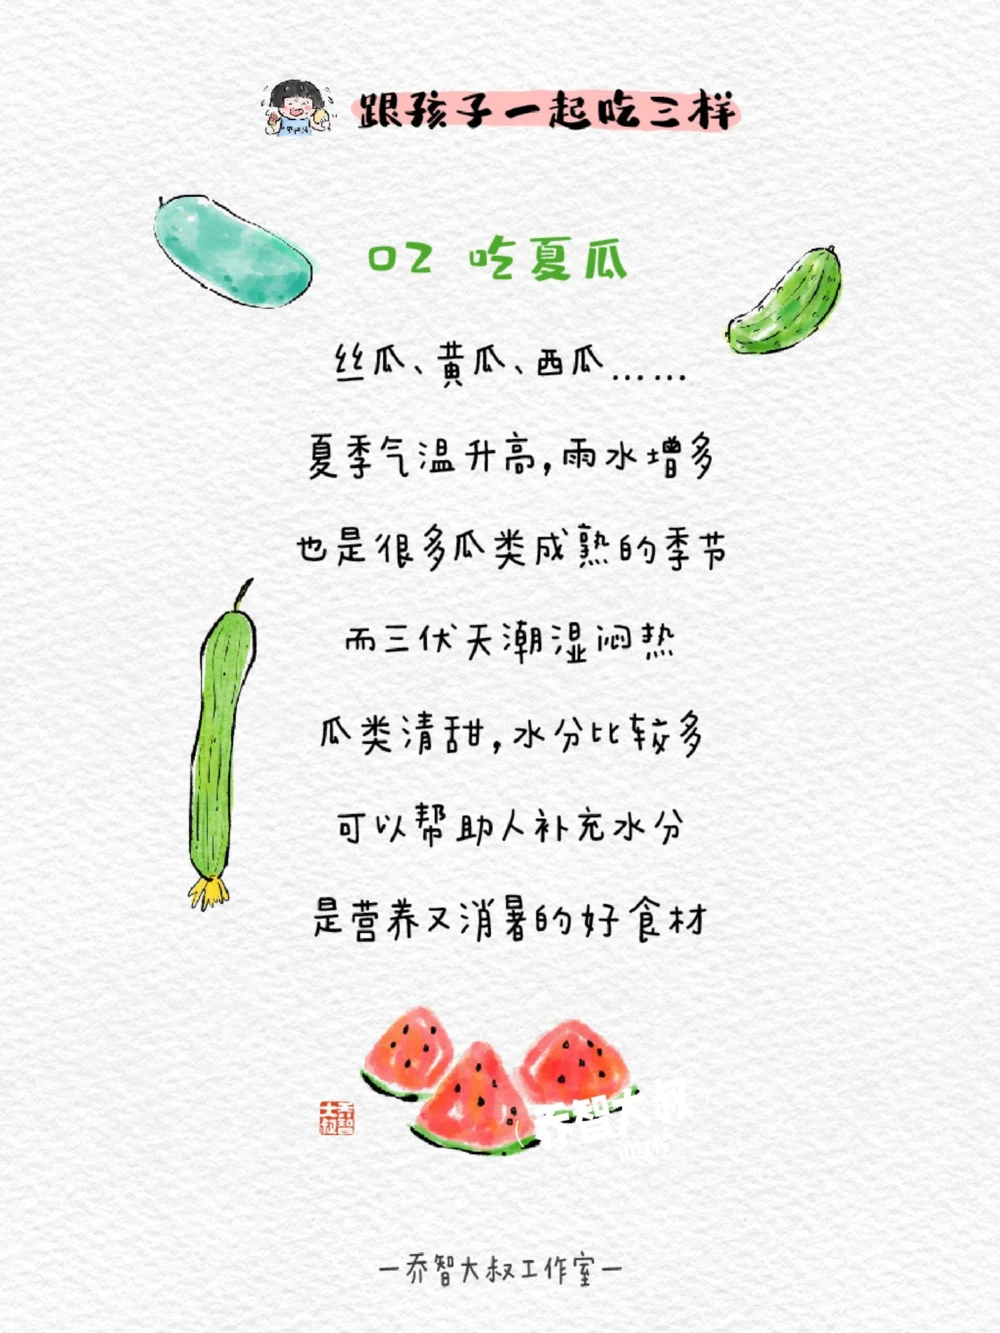 跟孩子一起吃三样
02 吃夏瓜
丝瓜、黄瓜、西瓜……
夏季气温升高,雨水增多
也是很多瓜类成熟的季节
而三伏天潮湿闷热
瓜类清甜,水分比较多
可以帮助人补充水分
是营养又消暑的好食材
乔智大叔
乔智大叔
—乔智大叔工作室—